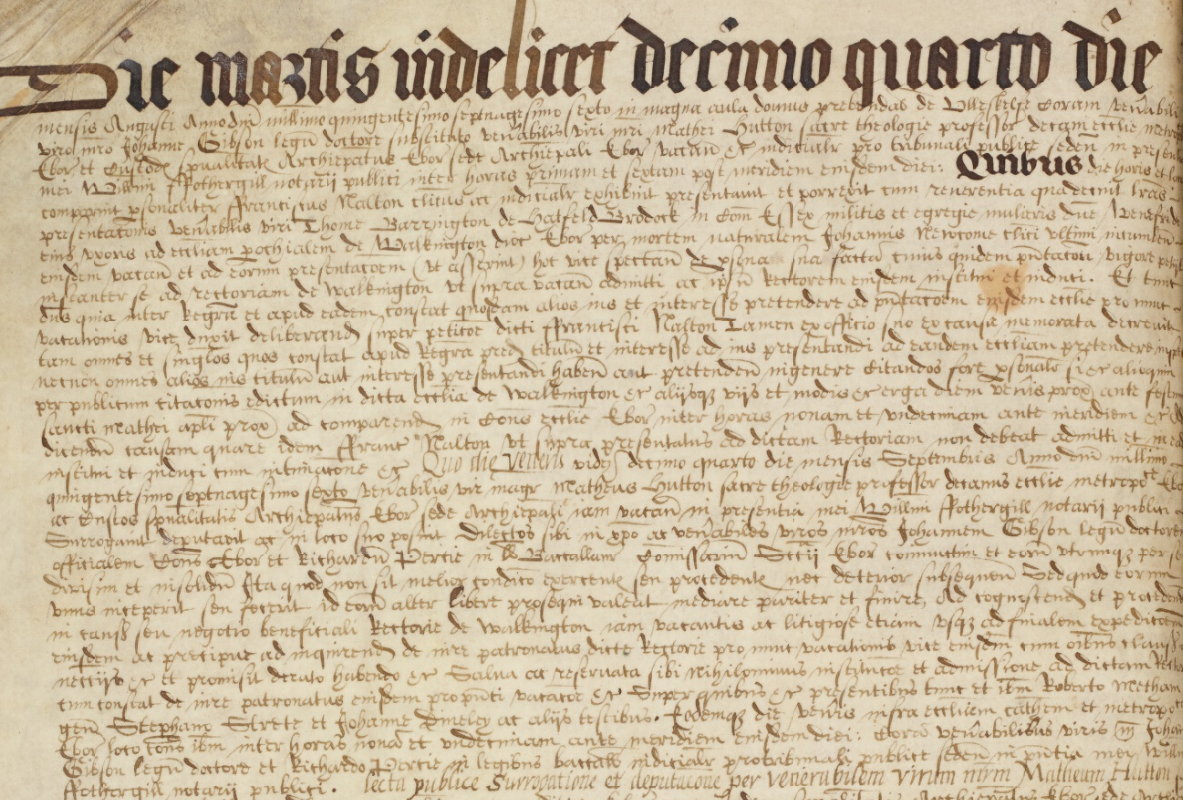 Die martis videlicet decimo quarto die
mensis Augusti Anno dni millimo quingentesimo septuagesimo sexto in magna aula domus prebendas de Ulleskelfe Coram venabili
viro mro Johanne Gibson legu doctore substituto venabilis viri mri Mathei Hutton sacre theologie professor decani ecclie metro
Ebor et Custod spualitat Archiepatus Ebor sede Archiepali Ebor vacan &c iudicialr pro tribunali publice seden in presen
mei Willmi ffothergill notarii publici inter horas primam et sextam post meridiem eiusdem diei: Quibus die horis et lo
comparuit psonaliter ffranciscus Nalton clicus ac iudicialr exhibuit presentavit et porrexit cum reverentia quadecuit lras
presentationis venabilis viri Thome Barrington de Hatfeld Brodock in Com Essex militis et egregie mulieris dne Wenefrid
eius uxoris ad eccliam pochialem de Walkington dioc Ebor per mortem naturalem Johannis Newcome clici ultimi incumben
eiusdem vacan et ad eorum presentacoem (ut asserint) hoc vice spectan de psona sua factas cuius quidem pntacou vigore petiit
instanter se ad rectoriam de Walkington ut supra vacan admitti ac ipsu Rectorem eiusdem institui et induci. Et tunc
dns quia inter Regrm et apud eadem constat quosdam alios ius et interesse pretendere ad pntacoem eiusdem ecclie pro nunc
vacationis vice duxit deliberand super peticoe dicti ffrancisci Nalton Tamen ex officio suo ex causis memorata decrevit
tam omnes et singlos quos constat apud Regrm pred titulu et interesse ad ius presentandi ad eandem eccliam pretendere in spe
necnon omnes alios ius titulum aut interesse presentandi haben aut pretenden in genere Citandos fore psonalr si &c alioquin
per publicum citationis edictum in dicta ecclia de Walkington &c aliisqz viis et modis &c erga diem veneris prox ante festum
sancti Mathei apli prox ad comparend in Cons ecclie Ebor inter horas nonam et undecimam ante meridiem &c ad
dicendu causam quare idem ffranc Nalton ut supra presentatus ad dictam Rectoriam non debeat admitti et in ead
institui et induci cum intimatone &c Quo die veneris videlt decimo quarto die mensis Septembris Anno dni millimo
quingentesimo septuagesimo sexto venabilis vir magr Matheus Hutton sacre theologie professor decanus ecclie metropoce Ebor
ac Custos spualitatis Archiepatus Ebor sede Archiepali iam vacan in presentia mei Willmi ffothergill notarii publici
Surrogavit deputavit ac in loco suo posuit Dilectos sibi in xpo ac venabiles viros mros Johannem Gibson legu doctorem
officialem Cons Ebor et Richardu Percie in llb Baccallaur Comissarium Sccii Ebor coniunctim et eoru utrumqz per se
divisim et insolidu Ita quod non sit melior condico exercent seu procedent nec deterior subsequen Sed quid eorum
unus inceperit seu fecerit id eoru alter libere prosequi valeat mediare pariter et finire, Ad cognoscend et procedend
in causa seu negotio beneficiali Rectorie de Walkington iam vacantis ac litigiose etiam usqz ad finalem expedicoem
eiusdem ac precipue ad inquirend de iure patronatus dicte Rectorie pro nunc vacationis vice eiusdm cum oibus clausis
necciis &c et promisit de rato habendo &c Salva ac reservata sibi Nihilominus institucoe et admissione ad dictam Rect
cum constat de iure patronatus eiusdem pro pnti vacatoe &c Super quibus &c presentibus tunc et ibm Roberto Metham
gen Stephano Strete et Johanne Smeley ac aliis testibus. Eodemqz die veneris infra eccliam cathem et metropo
Ebor loco Cons ibm inter horas nona et undecimam ante meridiem eiusdem diei: Coram venabilibus viris m Johan
Gibson legu doctore et Richardo Percie in legibus baccallr iudicialr pro tribunali publice seden in pntia mei Willm
ffothergill notarii publici. Lecta publice Surrogatione et deputacone per venerabilem virum mrm Matheum Hutton